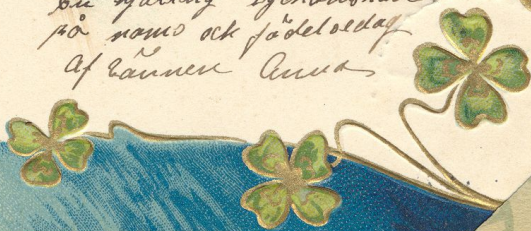 en hjärtlig lyckönskan
på namo ock födelsedag
af vännen Anna